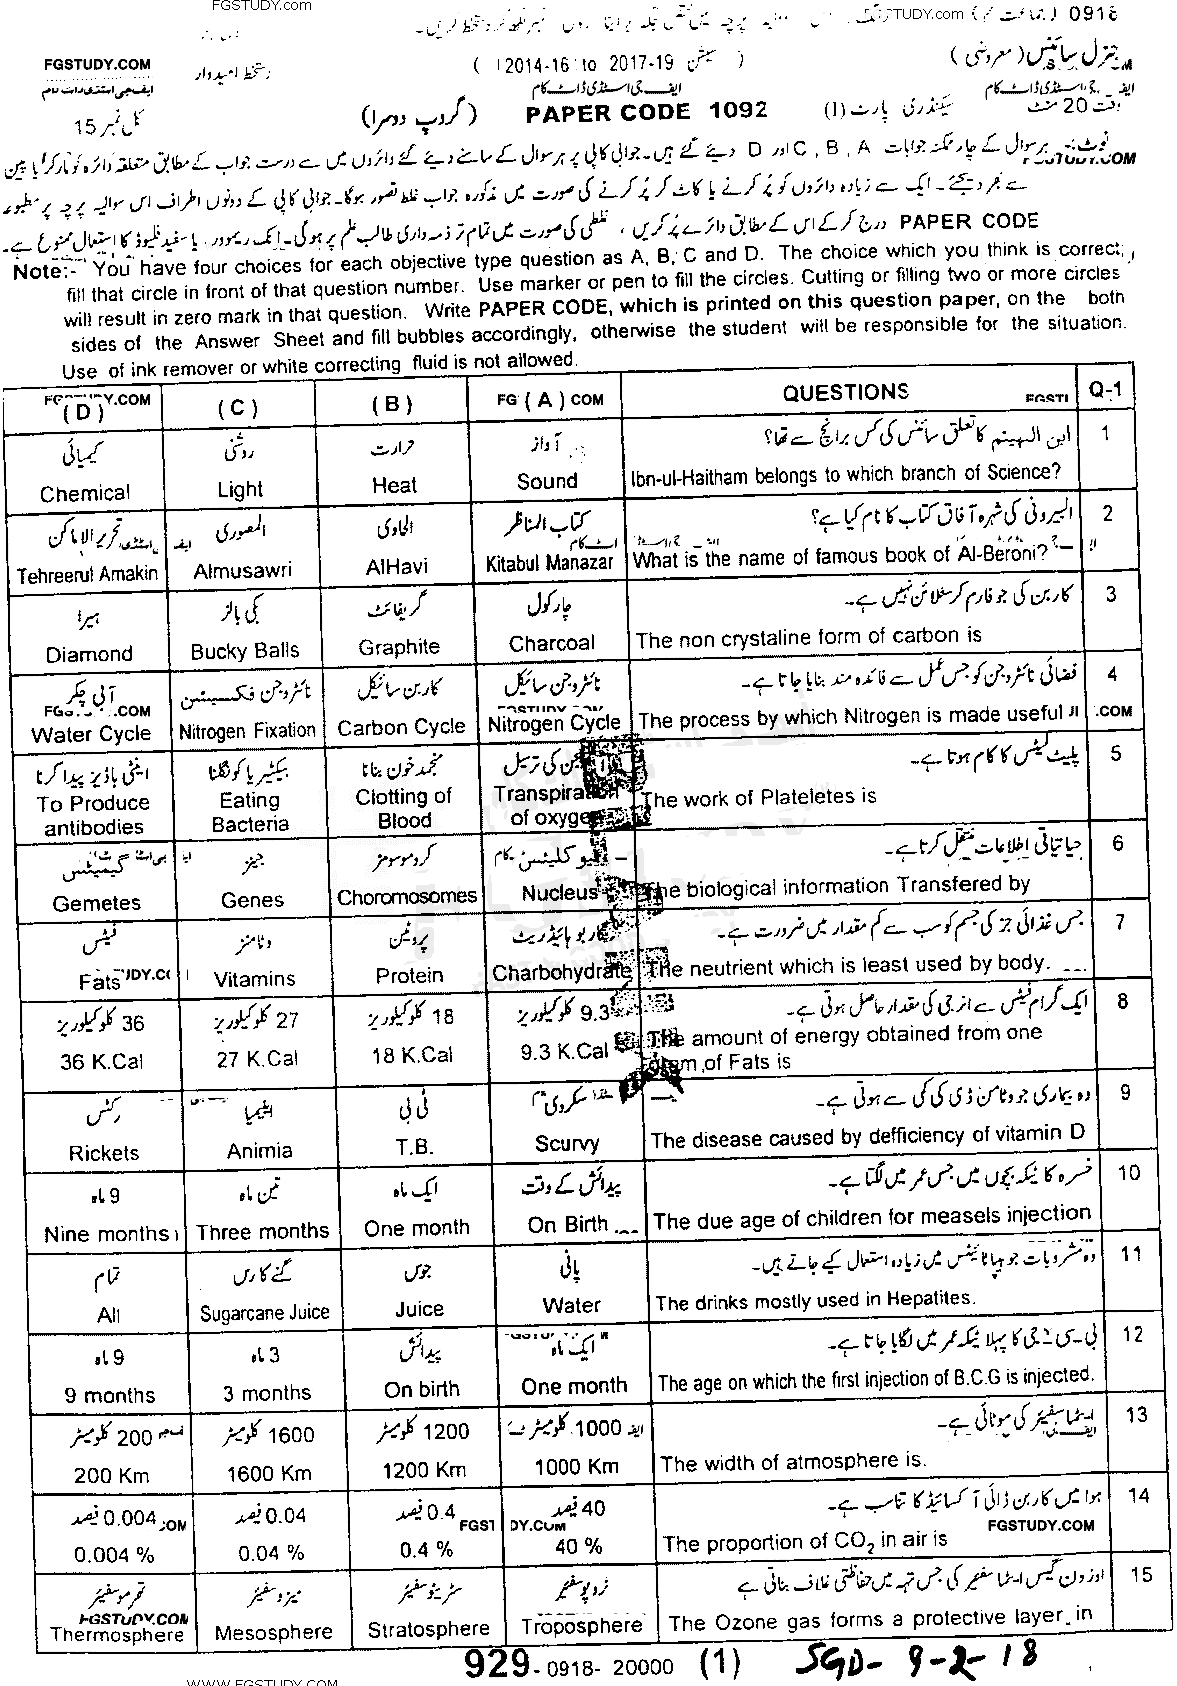 FGSTUDY.COM
FGSTUDY.com (جماعت نہم) 0918
FGSTUDY.COM
ایف جی اسٹڈی ڈاٹ کام
دستخط امیدوار
(سیشن 2014-16 to 2017-19)
جنرل سائنس (معروضی)
کل نمبر 15
(گروپ دوسرا) PAPER CODE 1092 سیکنڈری پارٹ (I) وقت 20 منٹ
نوٹ:۔ ہر سوال کے چار ممکنہ جوابات A ، B ، C اور D دیئے گئے ہیں۔ جوابی کاپی پر ہر سوال کے سامنے دیئے گئے دائروں میں سے درست جواب کے مطابق متعلقہ دائرہ کو مارکر یا پین
سے بھر دیجئے۔ ایک سے زیادہ دائروں کو پُر کرنے یا کاٹ کر پُر کرنے کی صورت میں مذکورہ جواب غلط تصور ہوگا۔ جوابی کاپی کے دونوں اطراف اس سوالیہ پرچہ پر مطبوعہ
PAPER CODE درج کر کے اس کے مطابق دائرے پُر کریں ، غلطی کی صورت میں تمام تر ذمہ داری طالب علم پر ہوگی۔ انک ریموور یا سفید فلیوڈ کا استعمال ممنوع ہے۔
Note:- You have four choices for each objective type question as A, B, C and D. The choice which you think is correct;
fill that circle in front of that question number. Use marker or pen to fill the circles. Cutting or filling two or more circles
will result in zero mark in that question. Write PAPER CODE, which is printed on this question paper, on the both
sides of the Answer Sheet and fill bubbles accordingly, otherwise the student will be responsible for the situation.
Use of ink remover or white correcting fluid is not allowed.
(D) (C) (B) (A) QUESTIONS Q-1
کیمیائی روشنی حرارت آواز ابن الہیثم کا تعلق سائنس کی کس برانچ سے تھا؟ 1
Chemical Light Heat Sound Ibn-ul-Haitham belongs to which branch of Science?
تحریر الاماکن المصوری الحاوی کتاب المناظر البیرونی کی شہرہ آفاق کتاب کا نام کیا ہے؟ 2
Tehreerul Amakin Almusawri AlHavi Kitabul Manazar What is the name of famous book of Al-Beroni?
ہیرا بکی بالز گریفائٹ چارکول کاربن کی جو فارم کرسٹلائن نہیں ہے۔ 3
Diamond Bucky Balls Graphite Charcoal The non crystaline form of carbon is
آبی چکر نائٹروجن فکسیشن کاربن سائیکل نائٹروجن سائیکل فضائی نائٹروجن کو جس عمل سے فائدہ مند بنایا جاتا ہے۔ 4
Water Cycle Nitrogen Fixation Carbon Cycle Nitrogen Cycle The process by which Nitrogen is made useful
اینٹی باڈیز پیدا کرنا بیکٹیریا کو نگلنا منجمد خون بنانا کی ترسیل پلیٹ لیٹس کا کام ہوتا ہے۔ 5
To Produce antibodies Eating Bacteria Clotting of Blood Transpiration of oxygen The work of Plateletes is
گیمیٹس جینز کروموسومز نیوکلیئس حیاتیاتی اطلاعات منتقل کرتا ہے۔ 6
Gemetes Genes Choromosomes Nucleus The biological information Transfered by
فیٹس وٹامنز پروٹین کاربوہائیڈریٹ جس غذائی جز کی جسم کو سب سے کم مقدار میں ضرورت ہے۔ 7
Fats Vitamins Protein Charbohydrate The neutrient which is least used by body.
36 کلوکیلوریز 27 کلوکیلوریز 18 کلوکیلوریز 9.3 کلوکیلوریز ایک گرام فیٹس سے انرجی کی مقدار حاصل ہوتی ہے۔ 8
36 K.Cal 27 K.Cal 18 K.Cal 9.3 K.Cal The amount of energy obtained from one gram of Fats is
رکٹس اینیمیا ٹی بی سکروی وہ بیماری جو وٹامن ڈی کی کمی سے ہوتی ہے۔ 9
Rickets Animia T.B. Scurvy The disease caused by defficiency of vitamin D
9 ماہ تین ماہ ایک ماہ پیدائش کے وقت خسرہ کا ٹیکہ بچوں میں جس عمر میں لگتا ہے۔ 10
Nine months Three months One month On Birth The due age of children for measels injection
تمام گنے کا رس جوس پانی وہ مشروبات جو ہیپاٹائیٹس میں زیادہ استعمال کیے جاتے ہیں۔ 11
All Sugarcane Juice Juice Water The drinks mostly used in Hepatites.
9 ماہ 3 ماہ پیدائش ایک ماہ بی۔سی۔جی کا پہلا ٹیکہ عمر میں لگایا جاتا ہے۔ 12
9 months 3 months On birth One month The age on which the first injection of B.C.G is injected.
200 کلومیٹر 1600 کلومیٹر 1200 کلومیٹر 1000 کلومیٹر ایٹماسفیئر کی موٹائی ہے۔ 13
200 Km 1600 Km 1200 Km 1000 Km The width of atmosphere is.
0.004 فیصد 0.04 فیصد 0.4 فیصد 40 فیصد ہوا میں کاربن ڈائی آکسائیڈ کا تناسب ہے۔ 14
FGSTUDY.COM FGSTUDY.COM
0.004 % 0.04 % 0.4 % 40 % The proportion of CO₂ in air is
تھرموسفیئر میزوسفیئر سٹریٹوسفیئر ٹروپوسفیئر اوزون گیس ایٹماسفیئر کی جس تہہ میں حفاظتی غلاف بناتی ہے 15
FGSTUDY.COM
Thermosphere Mesosphere Stratosphere Troposphere The Ozone gas forms a protective layer in
929-0918-20000 (1) SGD-9-2-18
WWW.FGSTUDY.COM